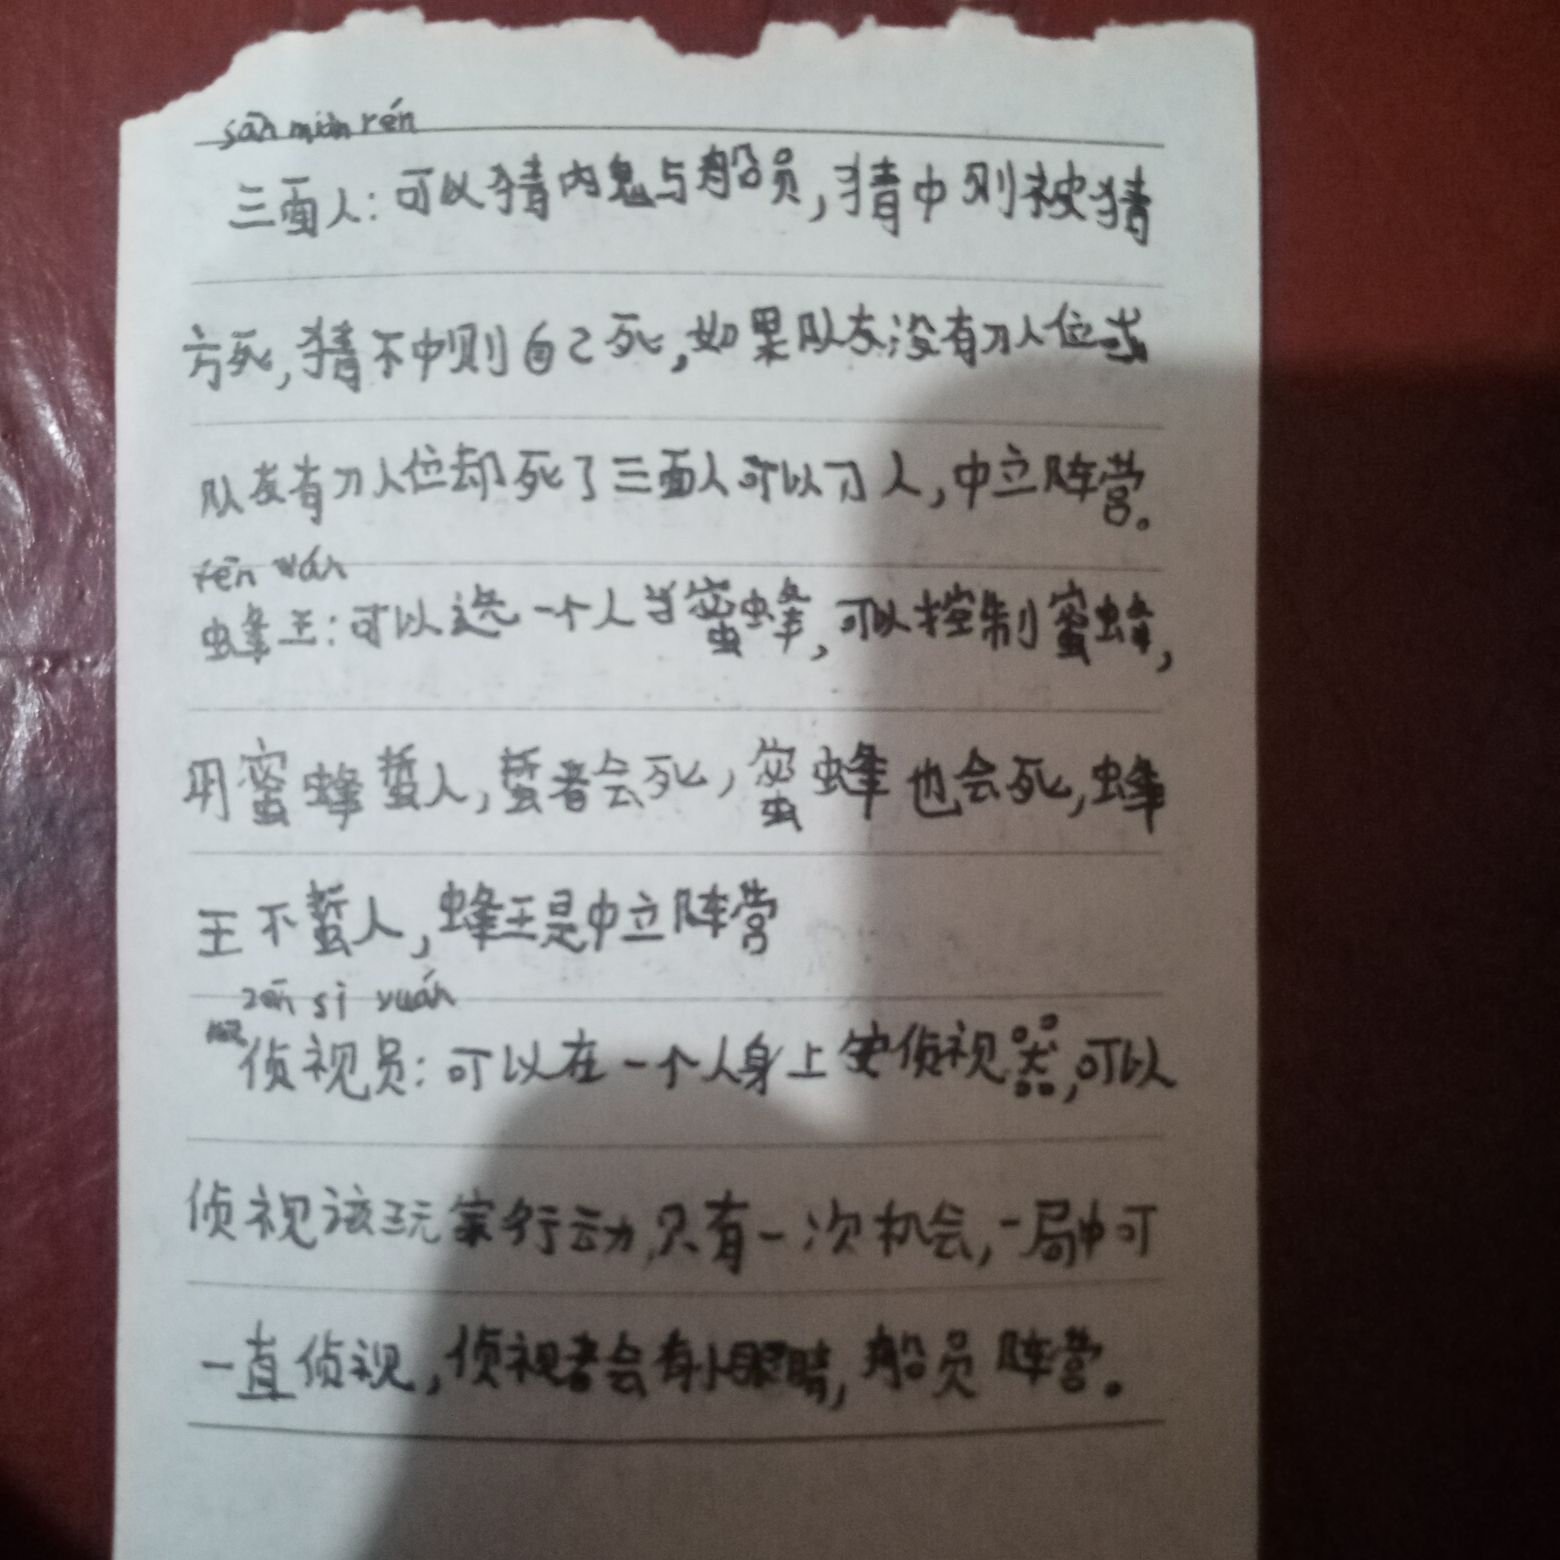 sān miàn rén
三面人:可以猜内鬼与船员,猜中则被猜
方死,猜不中则自己死,如果队友没有刀人位或
队友有刀人位却死了三面人可以刀人,中立阵营。
fēn wán
蜂王:可以选一个人当蜜蜂,可以控制蜜蜂,
用蜜蜂蜇人,蜇者会死,蜜蜂也会死,蜂
王不蜇人,蜂王是中立阵营
zēn sì yuán
侦视员:可以在一个人身上安侦视器,可以
侦视该玩家行动,只有一次机会,一局中可
一直侦视,侦视者会有小眼睛,船员阵营。